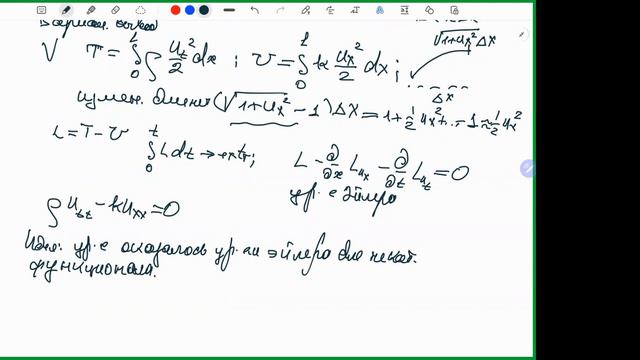 √1+u_x² Δx
V T = ∫₀ᴸ ρ u_t²/2 dx ; U = ∫₀ᴸ k u_x²/2 dx ;
Δx
измен. длины (√1+u_x² - 1) Δx = 1 + 1/2 u_x² + ... - 1 ≈ 1/2 u_x²
L = T - U ∫₀ᵗ L dt → extr;
L - ∂/∂x L_{u_x} - ∂/∂t L_{u_t} = 0
ур-е Эйлера
ρ u_{tt} - k u_{xx} = 0
Идея: ур-е оказалось ур-ем Эйлера для некот.
функционала.